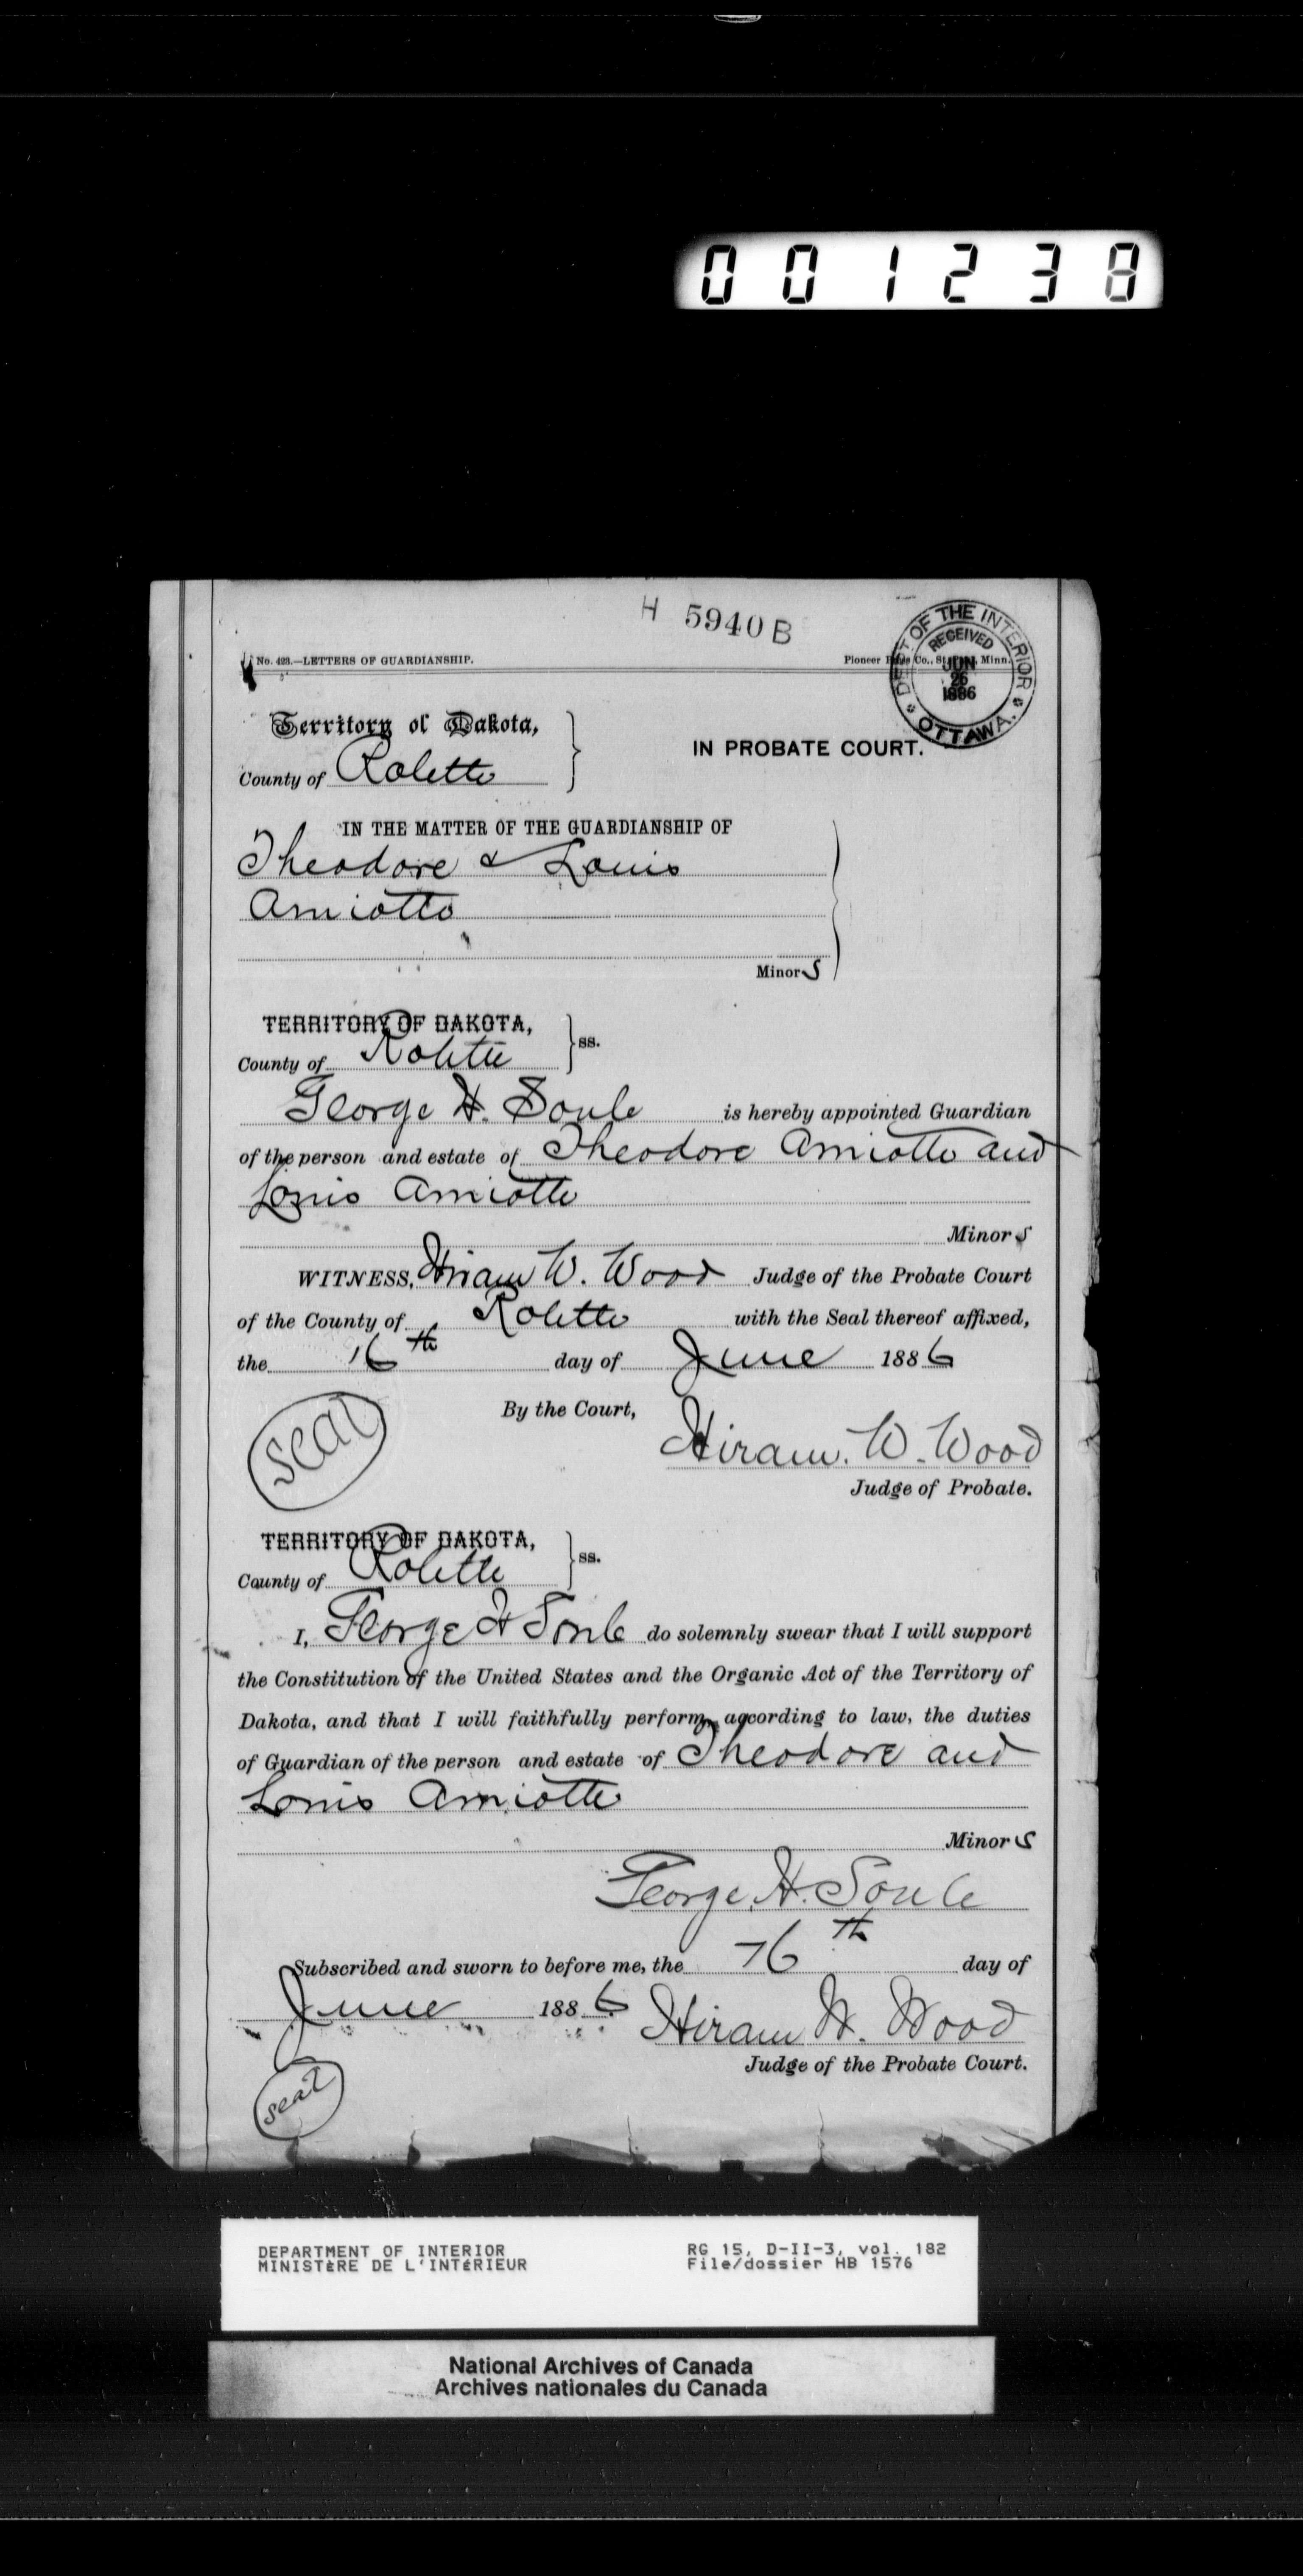 001238
H 5940 B
No. 423.—LETTERS OF GUARDIANSHIP.
Pioneer Co., St. Minn.
DEPT OF THE INTERIOR
RECEIVED
JUN
26
1886
OTTAWA.
Territory of Dakota,
IN PROBATE COURT.
County of Rolette
IN THE MATTER OF THE GUARDIANSHIP OF
Theodore & Louis
Amiotte
Minors
TERRITORY OF DAKOTA,
ss.
County of Rolette
George H. Soule is hereby appointed Guardian
of the person and estate of Theodore Amiotte and
Louis Amiotte
Minors
WITNESS, Hiram W. Wood Judge of the Probate Court
of the County of Rolette with the Seal thereof affixed,
the 16th day of June 1886
By the Court,
seal
Hiram. W. Wood
Judge of Probate.
TERRITORY OF DAKOTA,
ss.
County of Rolette
I, George H Soule do solemnly swear that I will support
the Constitution of the United States and the Organic Act of the Territory of
Dakota, and that I will faithfully perform, according to law, the duties
of Guardian of the person and estate of Theodore and
Louis Amiotte
Minors
George. H. Soule
Subscribed and sworn to before me, the 16th day of
June 1886 Hiram W. Wood
Judge of the Probate Court.
seal
DEPARTMENT OF INTERIOR
MINISTÈRE DE L'INTÉRIEUR
RG 15, D-II-3, vol. 182
File/dossier HB 1576
National Archives of Canada
Archives nationales du Canada